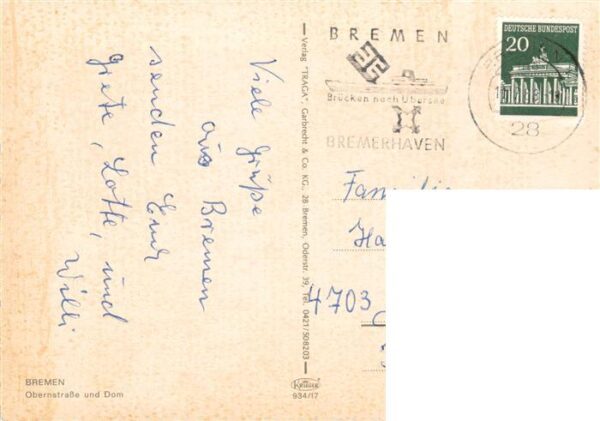 Viele Grüße
aus Bremen
senden Euch
Grete, Lotte, und
Willi
BREMEN
Obernstraße und Dom
Verlag "TRAGA", Garbrecht & Co. KG., 28 Bremen, Oderstr. 39, Tel. 0421/508203
Krüger
934/17
BREMEN
Brücken nach Übersee
BREMERHAVEN
DEUTSCHE BUNDESPOST
20
28
Familie
Ha
4703